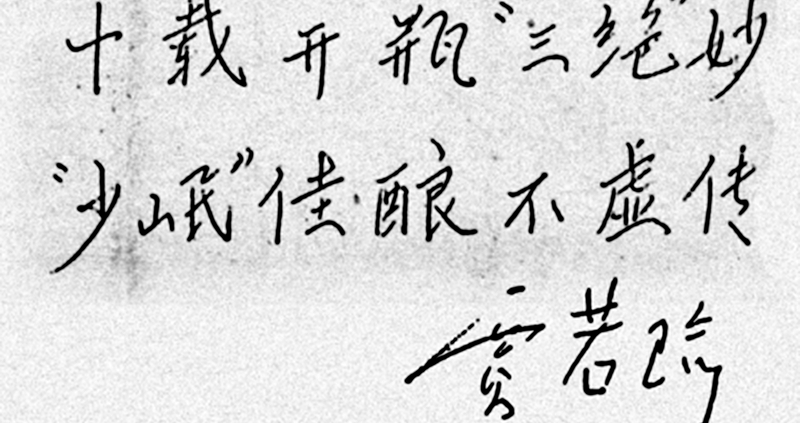 十载开瓶“三绝”妙
“少岷”佳酿不虚传
贾若瑜